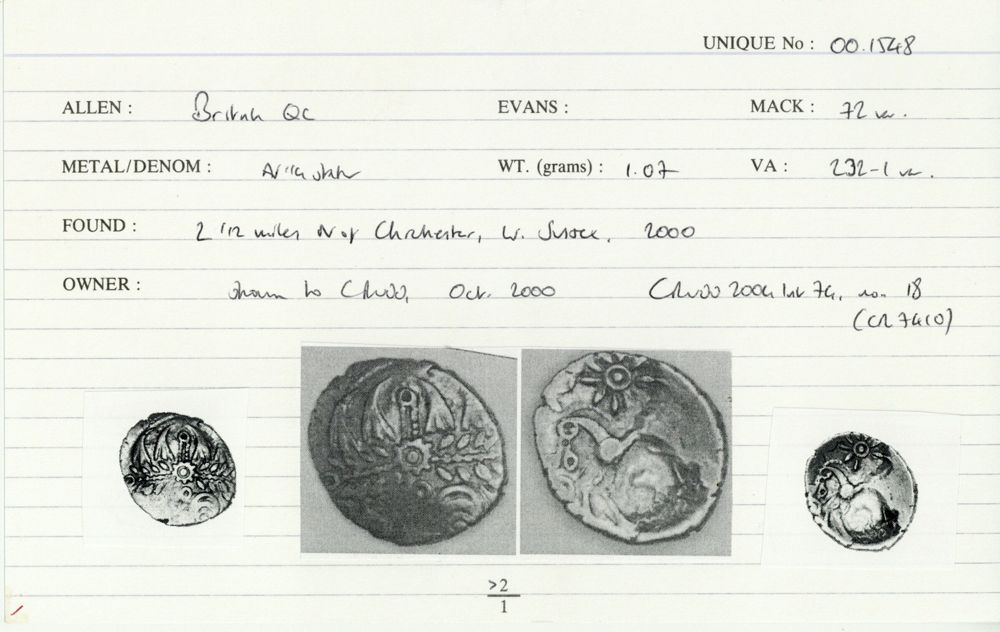 UNIQUE No : 00.1548
ALLEN : British QC EVANS : MACK : 72 var.
METAL/DENOM : AV 1/4 stater WT. (grams) : 1.07 VA : 232-1 var.
FOUND : 2 1/2 miles N of Chichester, W. Sussex, 2000
OWNER : shown to Oct. 2000 2004 list 74, no. 18
(CR 7410)
>2
1